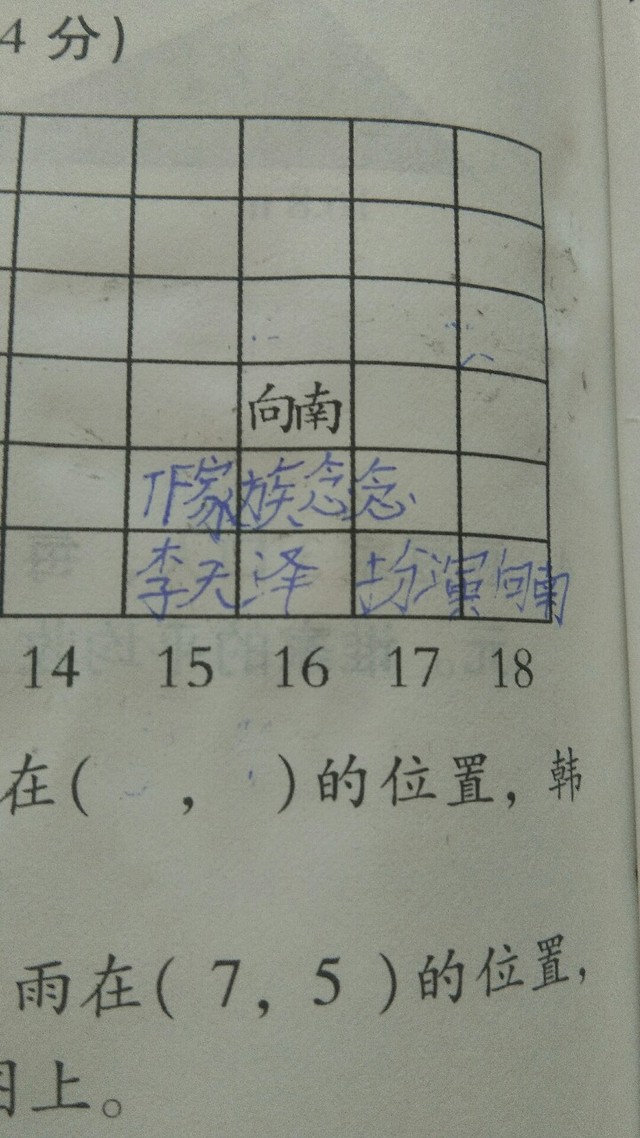 4 分)
向南
TF家族念念
李天泽 扮演向南
14 15 16 17 18
在( , )的位置,韩
雨在( 7, 5 )的位置,
上。